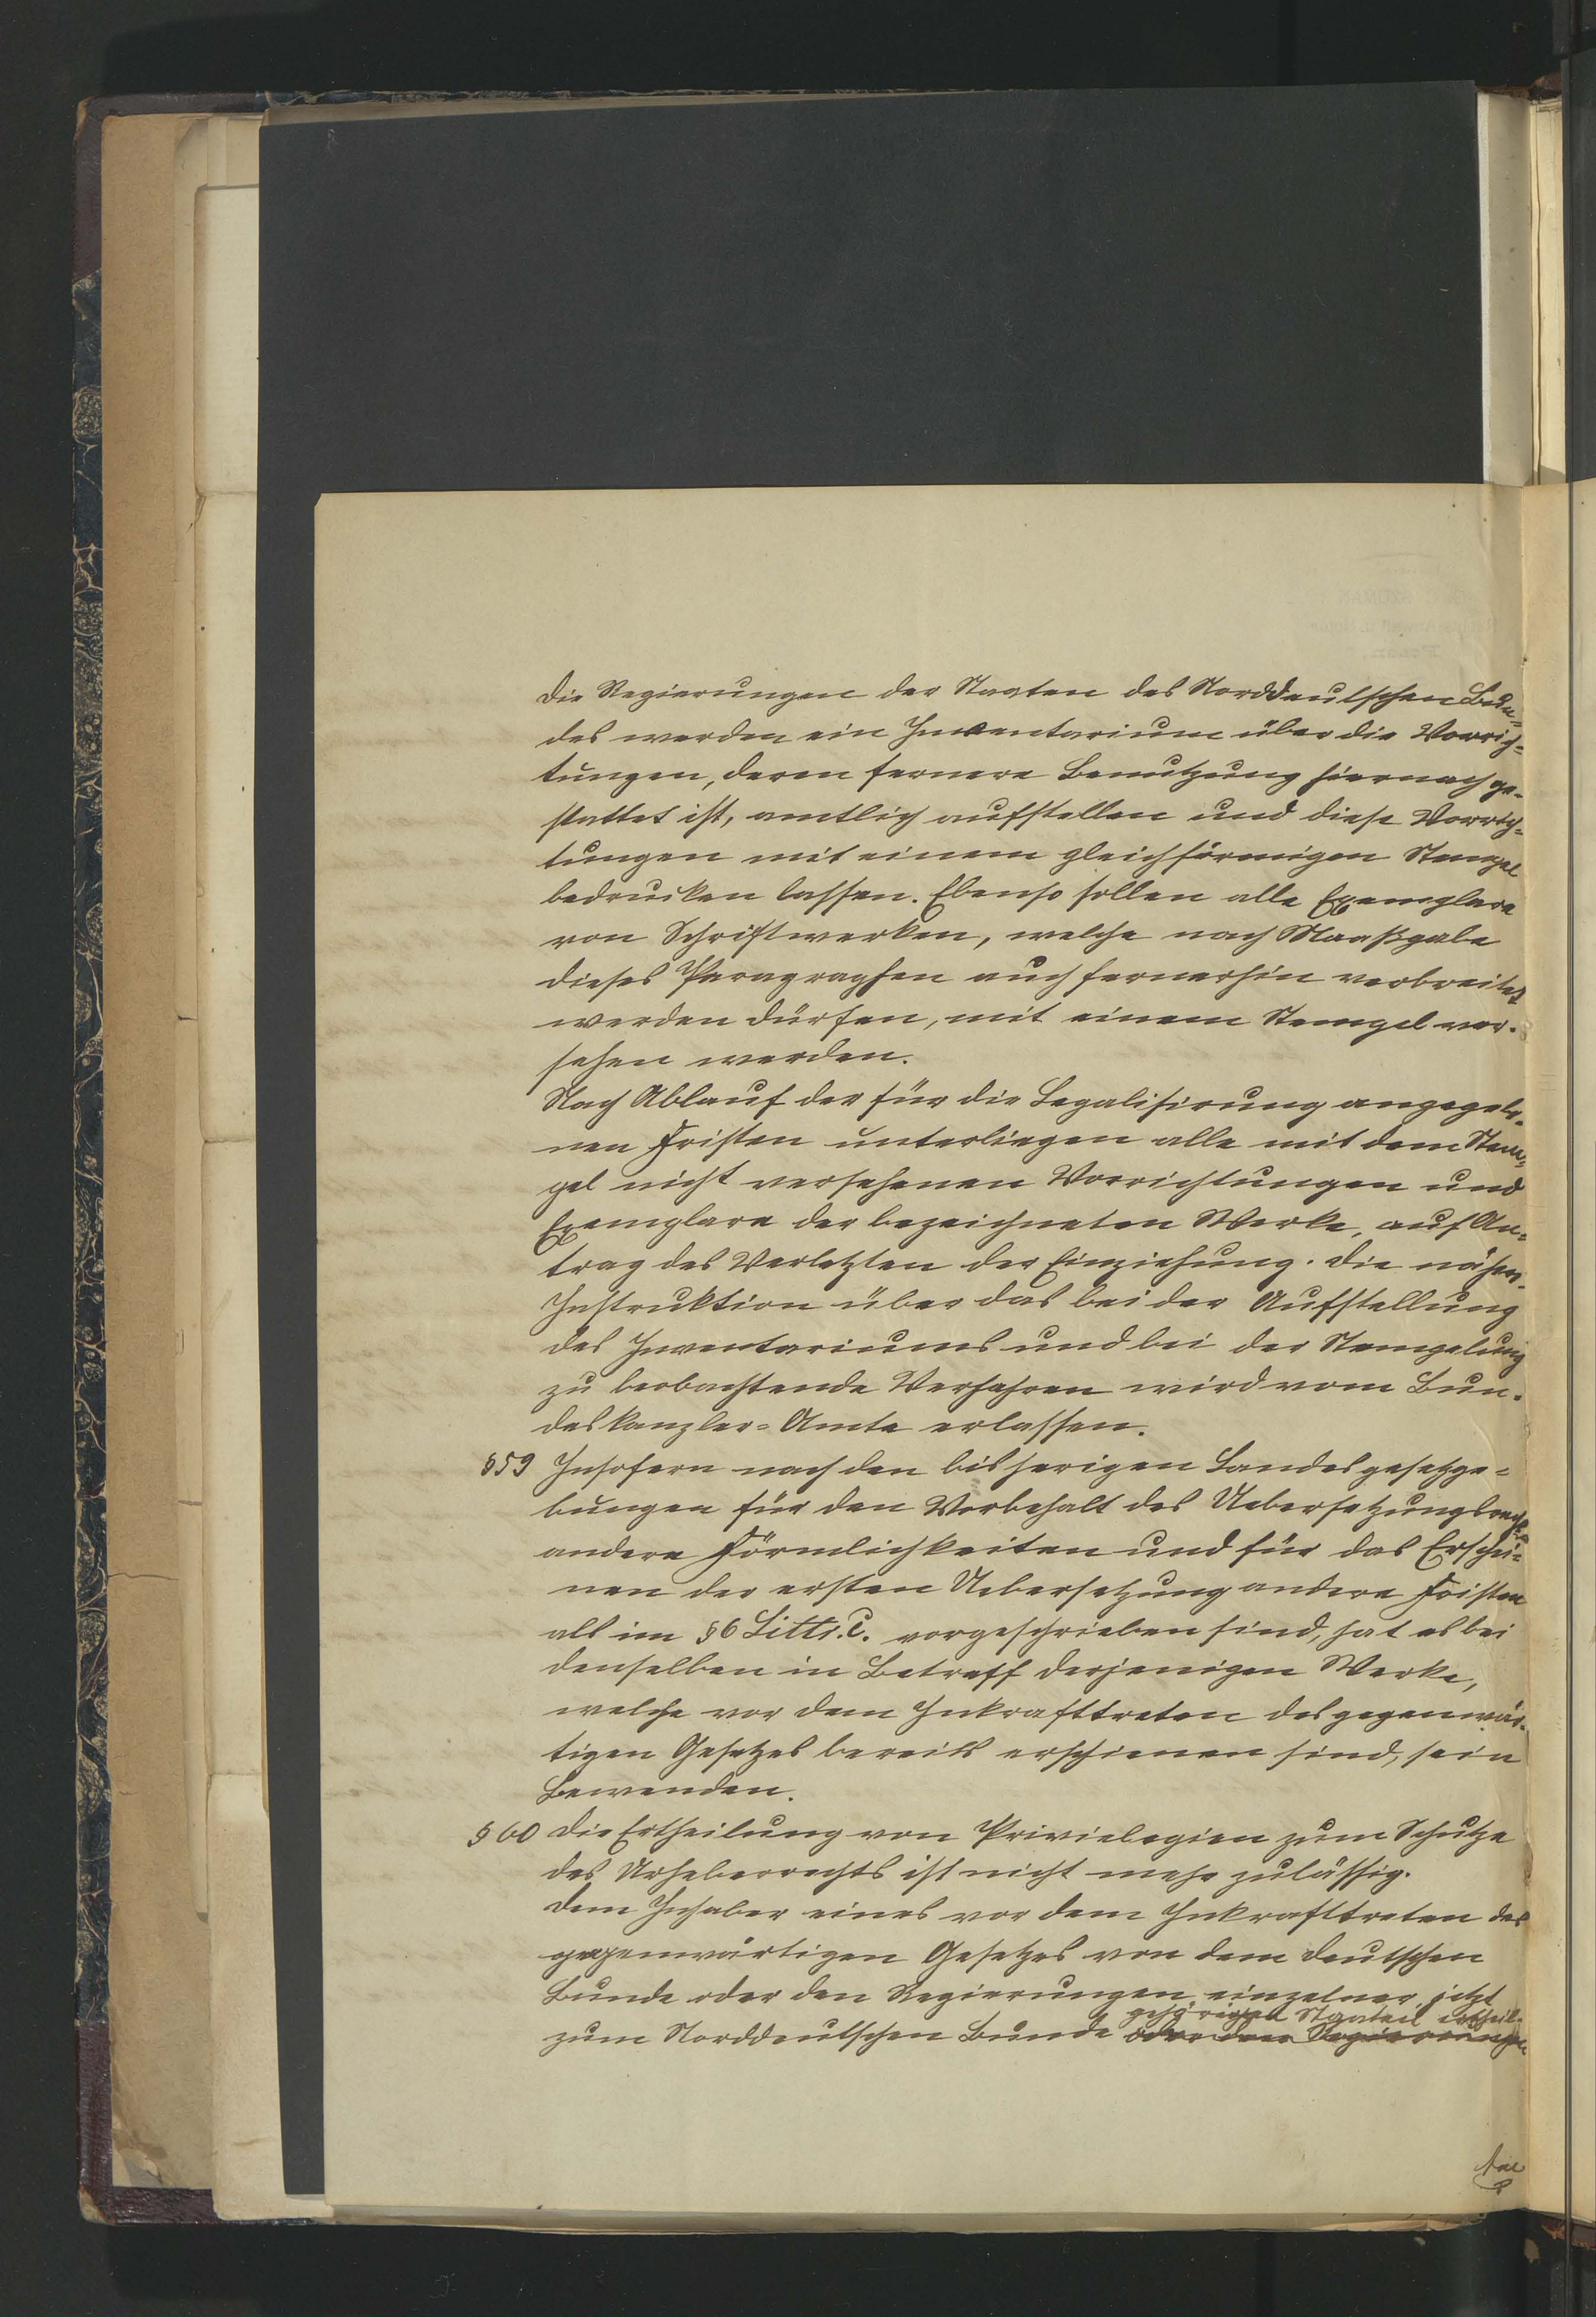 Die Regierungen der Staaten des Norddeutschen Bun-
des werden ein Inventarium über die Vorrich-
tungen, deren fernere Benutzung hiernach ge-
stattet ist, amtlich aufstellen und diese Vorrich-
tungen mit einem gleichförmigen Stempel
bedrucken lassen. Ebenso sollen alle Exemplare
von Schriftwerken, welche nach Maaßgabe
dieses Paragraphen auch fernerhin verbreitet
werden dürfen, mit einem Stempel ver-
sehen werden.
Nach Ablauf der für die Legalisirung angegebe-
nen Fristen unterliegen alle mit dem Stem-
pel nicht versehenen Vorrichtungen und
Exemplare der bezeichneten Werke, auf An-
trag des Verletzten der Einziehung. Die nähere
Instruktion über das bei der Aufstellung
des Inventariums und bei der Stempelung
zu beobachtende Verfahren wird vom Bun-
deskanzler-Amte erlassen.
§59 Insofern nach den bisherigen Landesgesetzge-
bungen für den Vorbehalt des Uebersetzungsrechts
andere Förmlichkeiten und für das Erschei-
nen der ersten Uebersetzung andere Fristen
als im §6 Littr. C. vorgeschrieben sind, hat es bei
denselben in Betreff derjenigen Werke,
welche vor dem Inkrafttreten des gegenwär-
tigen Gesetzes bereits erschienen sind, sein
Bewenden.
§60 Die Ertheilung von Privielegien zum Schutze
des Urheberrechts ist nicht mehr zulässig.
Dem Inhaber eines vor dem Inkrafttreten des
gegenwärtigen Gesetzes von dem deutschen
Bunde oder den Regierungen einzelner, jetzt
gehörigen Staaten ertheil-
zum Norddeutschen Bunde oder den Regierungen